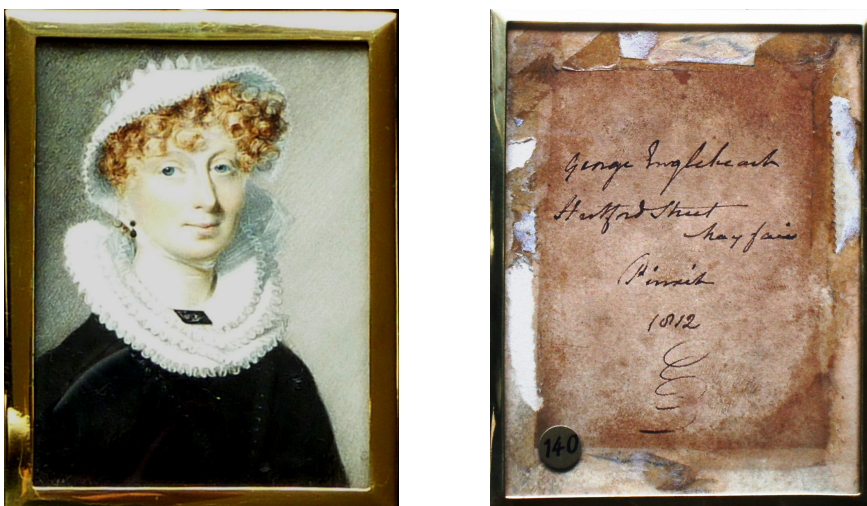 George Engleheart
Hertford Street
Mayfair
Pinxit
1812
E
140